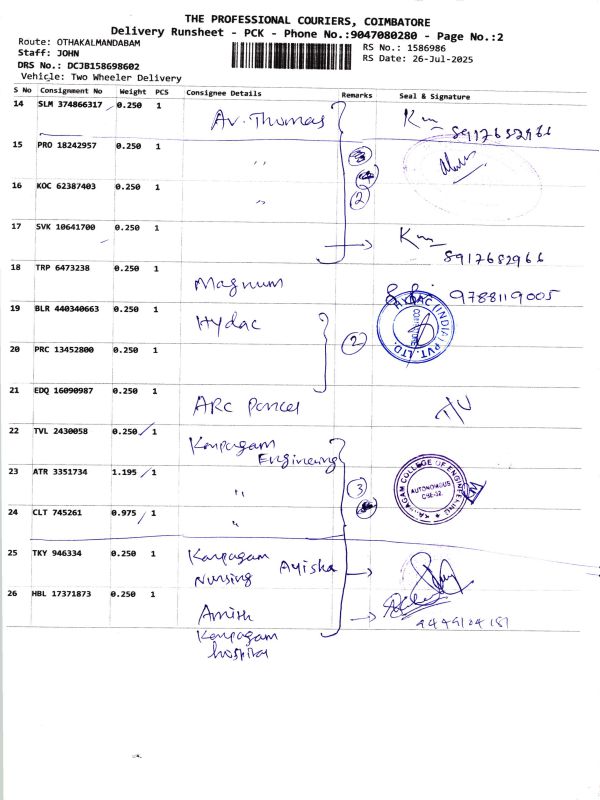 THE PROFESSIONAL COURIERS, COIMBATORE
Delivery Runsheet - PCK - Phone No.:9047080280 - Page No.:2
Route: OTHAKALMANDABAM
RS No.: 1586986
Staff: JOHN
RS Date: 26-Jul-2025
DRS No.: DCJB158698602
Vehicle: Two Wheeler Delivery
S No Consignment No Weight PCS Consignee Details Remarks Seal & Signature
14 SLM 374866317 0.250 1 Av. Thomas 8917682966
15 PRO 18242957 0.250 1 ,,
16 KOC 62387403 0.250 1 ,, 2
17 SVK 10641700 0.250 1 8917682966
18 TRP 6473238 0.250 1 Magnum 9788119005
19 BLR 440340663 0.250 1 Hydac 2 HYDAC (INDIA) PVT. LTD.
20 PRC 13452800 0.250 1
21 EDQ 16090987 0.250 1 ARC Parcel
22 TVL 2430058 0.250 1 Karpagam Engineering
23 ATR 3351734 1.195 1 ,, 3 KARPAGAM COLLEGE OF ENGINEERING AUTONOMOUS
24 CLT 745261 0.975 1 ,,
25 TKY 946334 0.250 1 Karpagam Nursing Ayisha
26 HBL 17371873 0.250 1 Amish
Karpagam hospital